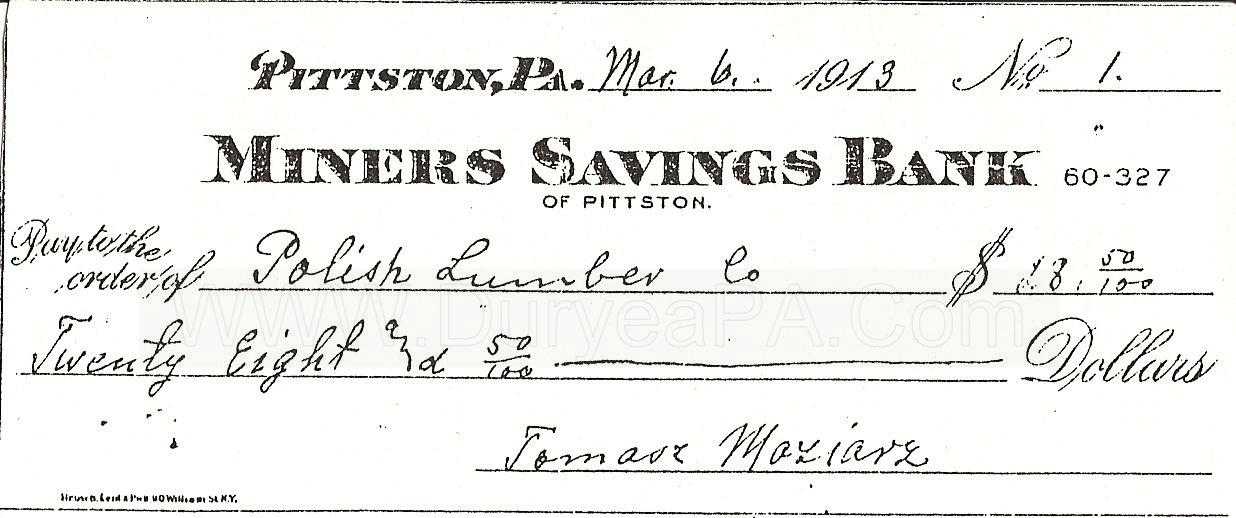 PITTSTON, PA. Mar. 6. 1913 No. 1.
MINERS SAVINGS BANK 60-327
OF PITTSTON.
Pay to the
order of Polish Lumber Co $ 28. 50/100
Twenty Eight & 50/100 Dollars
www.DuryeaPA.Com
Tomasz Moziarz
William St. N.Y.